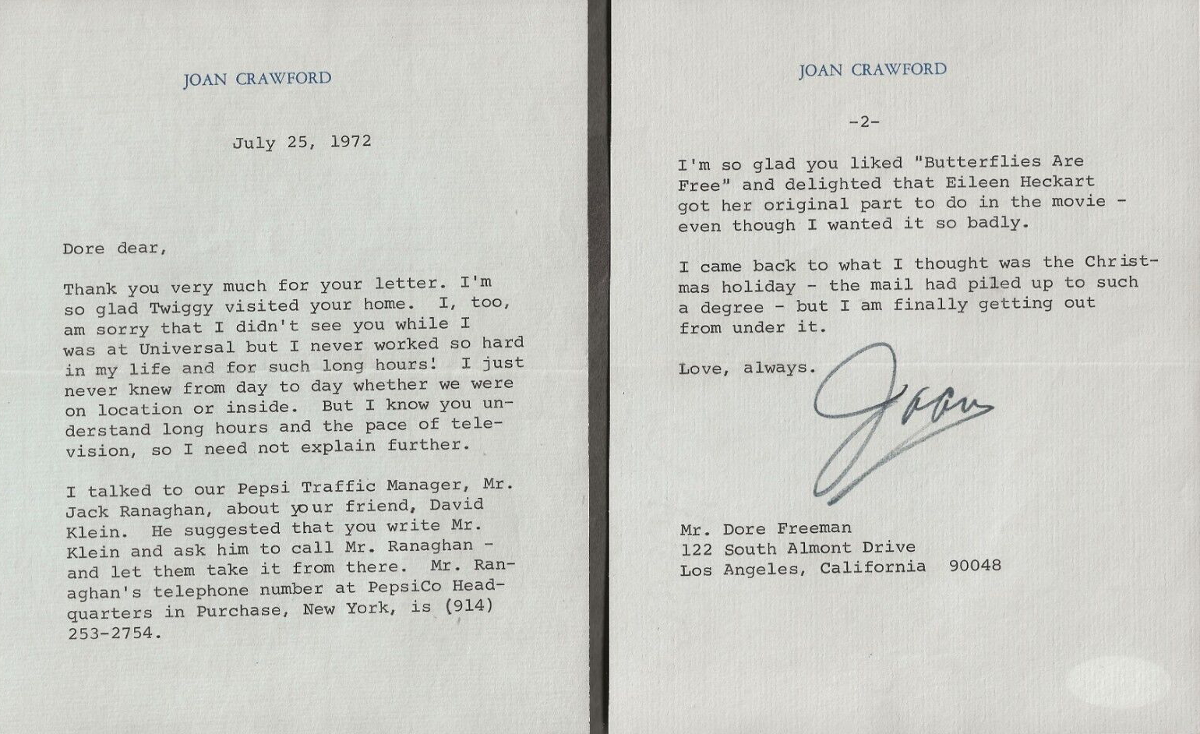 JOAN CRAWFORD
July 25, 1972
Dore dear,
Thank you very much for your letter. I'm
so glad Twiggy visited your home. I, too,
am sorry that I didn't see you while I
was at Universal but I never worked so hard
in my life and for such long hours! I just
never knew from day to day whether we were
on location or inside. But I know you un-
derstand long hours and the pace of tele-
vision, so I need not explain further.
I talked to our Pepsi Traffic Manager, Mr.
Jack Ranaghan, about your friend, David
Klein. He suggested that you write Mr.
Klein and ask him to call Mr. Ranaghan -
and let them take it from there. Mr. Ran-
aghan's telephone number at PepsiCo Head-
quarters in Purchase, New York, is (914)
253-2754.
JOAN CRAWFORD
-2-
I'm so glad you liked "Butterflies Are
Free" and delighted that Eileen Heckart
got her original part to do in the movie -
even though I wanted it so badly.
I came back to what I thought was the Christ-
mas holiday - the mail had piled up to such
a degree - but I am finally getting out
from under it.
Love, always.
Joan
Mr. Dore Freeman
122 South Almont Drive
Los Angeles, California 90048